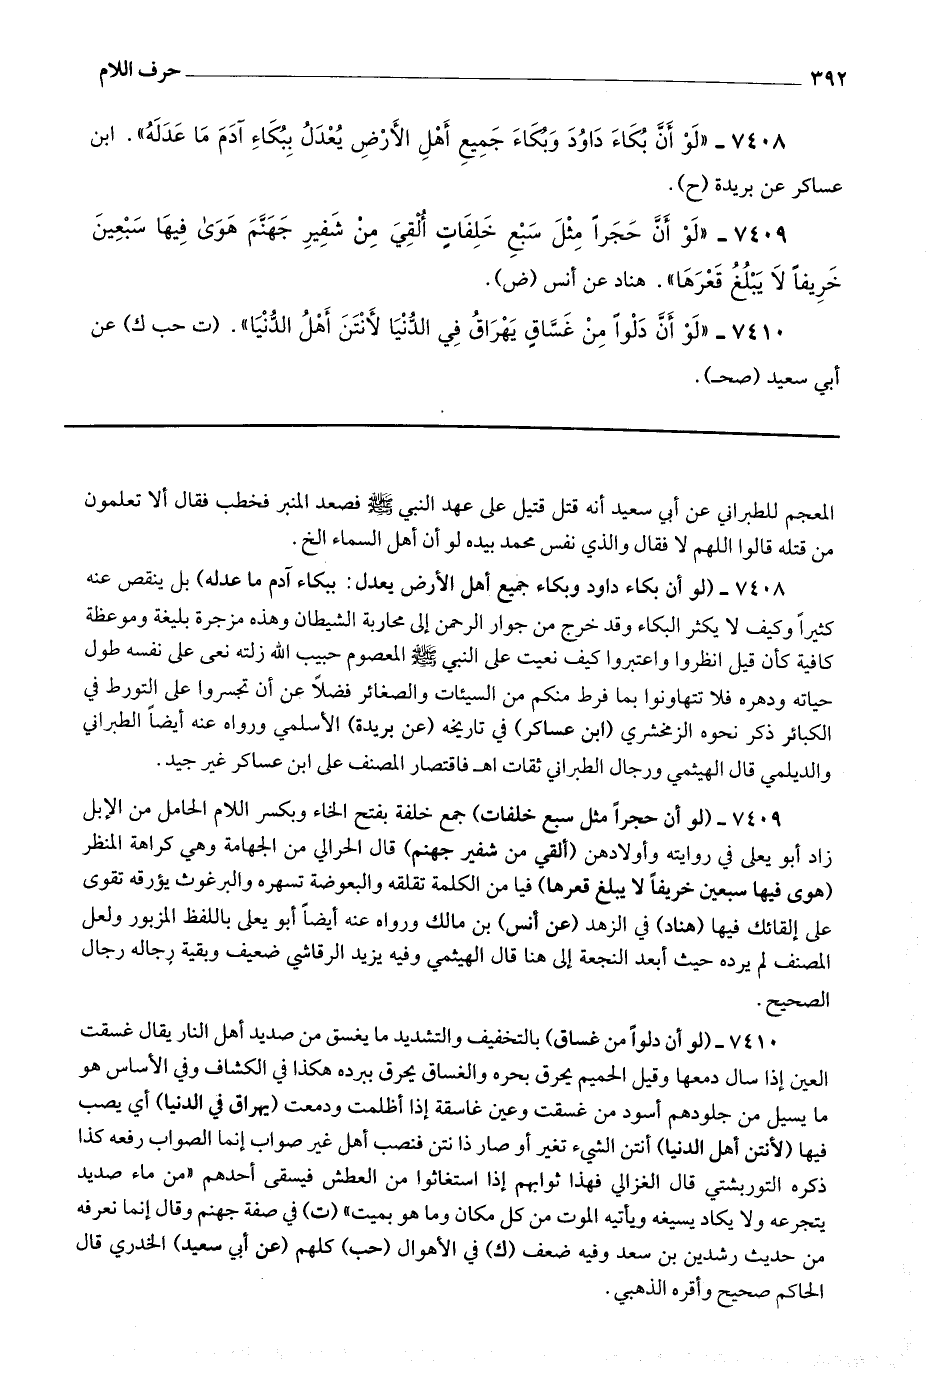 ٣٩٢ حرف اللام
٧٤٠٨ ـ «لَوْ أَنَّ بُكَاءَ دَاوُدَ وَبُكَاءَ جَمِيعِ أَهْلِ الأَرْضِ يُعْدَلُ بِبُكَاءِ آدَمَ مَا عَدَلَهُ». ابن
عساكر عن بريدة (ح).
٧٤٠٩ ـ «لَوْ أَنَّ حَجَراً مِثْلَ سَبْعِ خَلِفَاتٍ أُلْقِيَ مِنْ شَفِيرِ جَهَنَّمَ هَوَىٰ فِيهَا سَبْعِينَ
خَرِيفاً لَا يَبْلُغُ قَعْرَهَا». هناد عن أنس (ض).
٧٤١٠ ـ «لَوْ أَنَّ دَلْواً مِنْ غَسَّاقٍ يَهْرَاقُ فِي الدُّنْيَا لَأَنْتَنَ أَهْلُ الدُّنْيَا». (ت حب ك) عن
أبي سعيد (صحـ).
المعجم للطبراني عن أبي سعيد أنه قتل قتيل على عهد النبي ﷺ فصعد المنبر فخطب فقال ألا تعلمون
من قتله قالوا اللهم لا فقال والذي نفس محمد بيده لو أن أهل السماء الخ.
٧٤٠٨ ـ (لو أن بكاء داود وبكاء جميع أهل الأرض يعدل: ببكاء آدم ما عدله) بل ينقص عنه
كثيراً وكيف لا يكثر البكاء وقد خرج من جوار الرحمن إلى محاربة الشيطان وهذه مزجرة بليغة وموعظة
كافية كأن قيل انظروا واعتبروا كيف نعيت على النبي ﷺ المعصوم حبيب الله زلته نعى على نفسه طول
حياته ودهره فلا تتهاونوا بما فرط منكم من السيئات والصغائر فضلاً عن أن تجسروا على التورط في
الكبائر ذكر نحوه الزمخشري (ابن عساكر) في تاريخه (عن بريدة) الأسلمي ورواه عنه أيضاً الطبراني
والديلمي قال الهيثمي ورجال الطبراني ثقات اهـ فاقتصار المصنف على ابن عساكر غير جيد.
٧٤٠٩ ـ (لو أن حجراً مثل سبع خلفات) جمع خلفة بفتح الخاء وبكسر اللام الحامل من الإبل
زاد أبو يعلى في روايته وأولادهن (ألقي من شفير جهنم) قال الحرالي من الجهامة وهي كراهة المنظر
(هوى فيها سبعين خريفاً لا يبلغ قعرها) فيا من الكلمة تقلقه والبعوضة تسهره والبرغوث يؤرقه تقوى
على إلقائك فيها (هناد) في الزهد (عن أنس) بن مالك ورواه عنه أيضاً أبو يعلى باللفظ المزبور ولعل
المصنف لم يرده حيث أبعد النجعة إلى هنا قال الهيثمي وفيه يزيد الرقاشي ضعيف وبقية رجاله رجال
الصحيح.
٧٤١٠ ـ (لو أن دلواً من غساق) بالتخفيف والتشديد ما يغسق من صديد أهل النار يقال غسقت
العين إذا سال دمعها وقيل الحميم يحرق بحره والغساق يحرق ببرده هكذا في الكشاف وفي الأساس هو
ما يسيل من جلودهم أسود من غسقت وعين غاسقة إذا أظلمت ودمعت (يهراق في الدنيا) أي يصب
فيها (لأنتن أهل الدنيا) أنتن الشيء تغير أو صار ذا نتن فنصب أهل غير صواب إنما الصواب رفعه كذا
ذكره التوربشتي قال الغزالي فهذا ثوابهم إذا استغاثوا من العطش فيسقى أحدهم «من ماء صديد
يتجرعه ولا يكاد يسيغه ويأتيه الموت من كل مكان وما هو بميت» (ت) في صفة جهنم وقال إنما نعرفه
من حديث رشدين بن سعد وفيه ضعف (ك) في الأهوال (حب) كلهم (عن أبي سعيد) الخدري قال
الحاكم صحيح وأقره الذهبي.